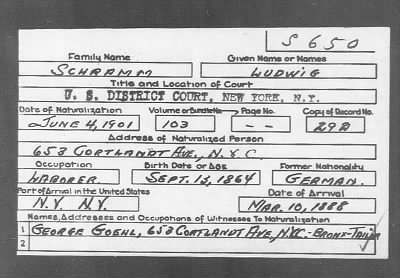 S 650
Family Name Given Name or Names
SCHRAMM LUDWIG
Title and Location of Court
U. S. DISTRICT COURT, NEW YORK, N.Y.
Date of Naturalization Volume or Bundle No. Page No. Copy of Record No.
JUNE 4, 1901 103 -- 298
Address of Naturalized Person
653 CORTLANDT AVE., N.Y.C
Occupation Birth Date or Age Former Nationality
LABORER SEPT. 15, 1864 GERMAN.
Port of Arrival in the United States Date of Arrival
N.Y. N.Y. MAR. 10, 1888
Names, Addresses and Occupations of Witnesses To Naturalization
1 GEORGE GOEHL, 653 CORTLANDT AVE, NYC.-BRONX-TAILOR
2